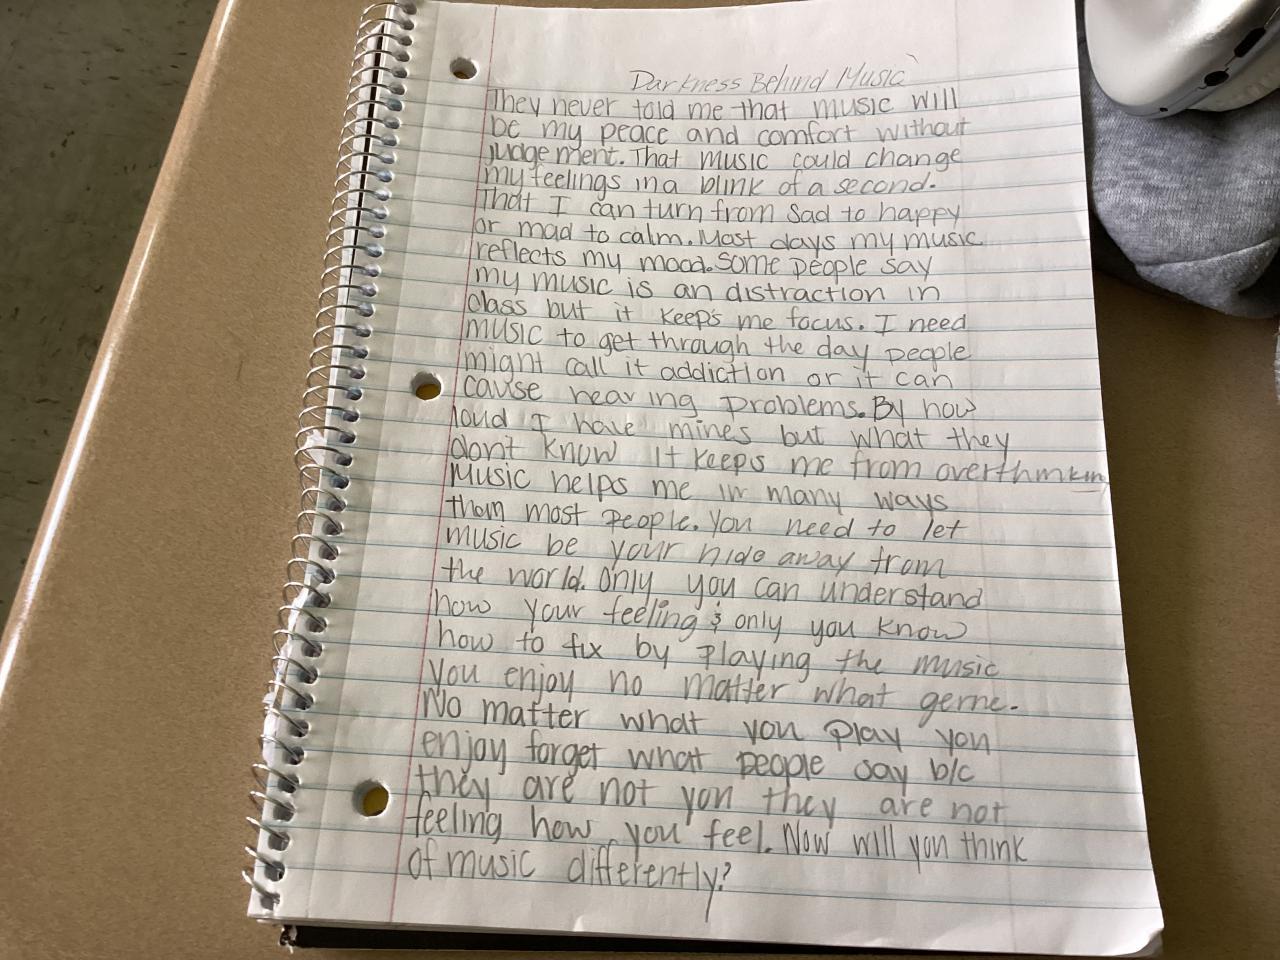 Darkness Behind Music
They never told me that music will
be my peace and comfort without
judgement. That music could change
my feelings in a blink of a second.
That I can turn from sad to happy
or mad to calm. Most days my music
reflects my mood. Some people say
my music is an distraction in
class but it keeps me focus. I need
music to get through the day people
might call it addiction or it can
cause hearing problems. By how
loud I have mines but what they
don't know it keeps me from overthinking
Music helps me in many ways
than most people. You need to let
music be your hide away from
the world. Only you can understand
how your feeling & only you know
how to fix by playing the music
you enjoy no matter what gerne.
No matter what you play you
enjoy forget what people say b/c
they are not you they are not
feeling how you feel. Now will you think
of music differently?